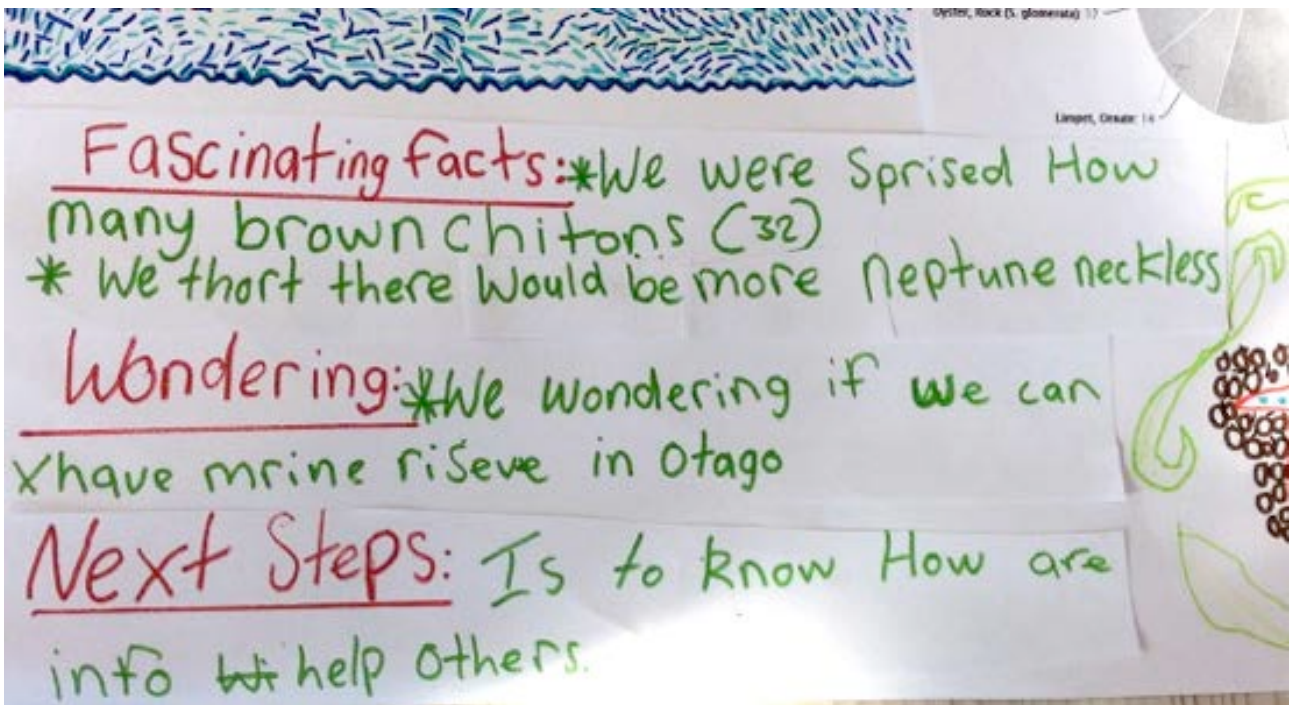 Oyster, Rock (S. glomerata) 17
Limpet, Ornate 14
Fascinating facts: *We were Sprised How
many brown chitons (32)
* We thort there Would be more neptune neckless
Wondering: *We wondering if we can
xhave mrine riseve in Otago
Next Steps: Is to know How are
info help others.